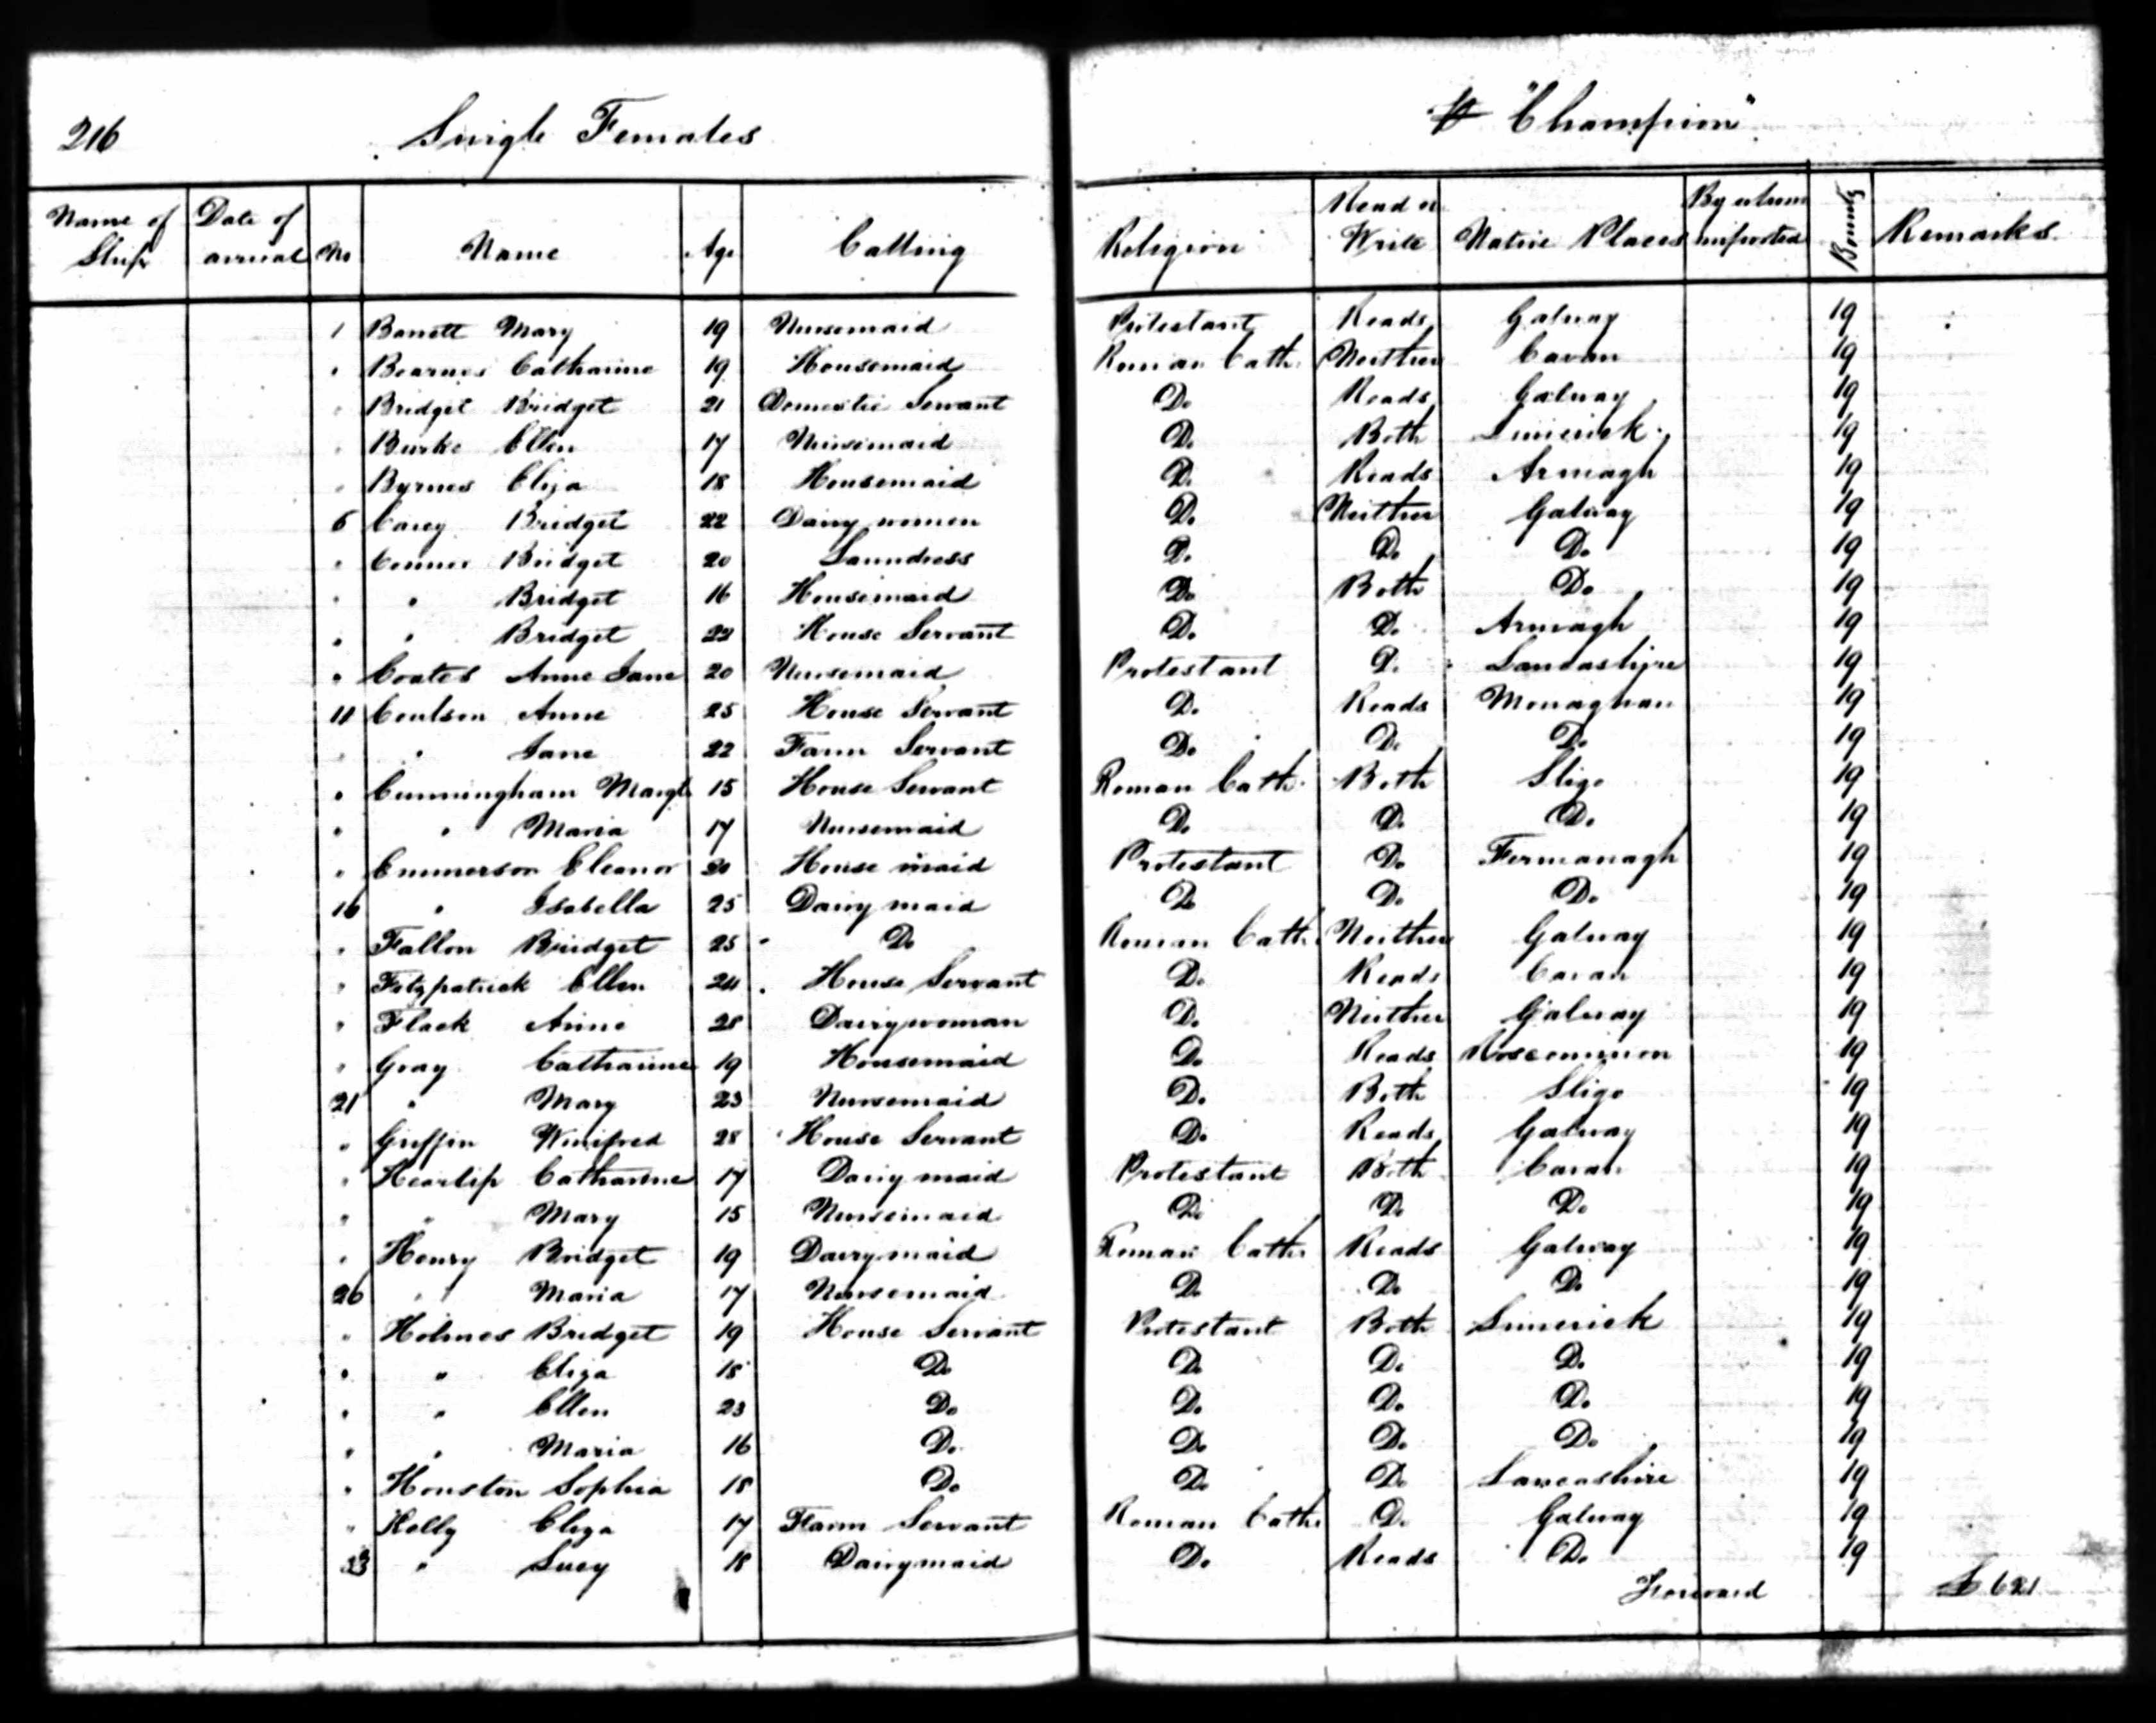 216 Single Females "Champion"
Name of Ship Date of arrival No Name Age Calling Religion Read or Write Native Places By whom imported Bounty Remarks
1 Barrett Mary 19 Nursemaid Protestant Reads Galway 19
" Bearnes Catharine 19 Housemaid Roman Cath. Neither Cavan 19
" Bridget Bridget 21 Domestic Servant Do Reads Galway 19
" Burke Ellen 17 Nursemaid Do Both Limerick 19
" Byrnes Eliza 18 Housemaid Do Reads Armagh 19
6 Carey Bridget 22 Dairy women Do Neither Galway 19
" Connor Bridget 20 Laundress Do Do Do 19
" " Bridget 16 Housemaid Do Both Do 19
" " Bridget 22 House Servant Do Do Armagh 19
" Coates Anne Jane 20 Nursemaid Protestant Do Lancashire 19
11 Coulson Anne 25 House Servant Do Reads Monaghan 19
" " Jane 22 Farm Servant Do Do Do 19
" Cunningham Margt 15 House Servant Roman Cath. Both Sligo 19
" " Maria 17 Nursemaid Do Do Do 19
" Emmerson Eleanor 20 House maid Protestant Do Fermanagh 19
16 " Isabella 25 Dairy maid Do Do Do 19
" Fallon Bridget 25 Do Roman Cath. Neither Galway 19
" Fitzpatrick Ellen 24 House Servant Do Reads Cavan 19
" Flack Anne 28 Dairywoman Do Neither Galway 19
" Gray Catharine 19 Housemaid Do Reads Roscommon 19
21 " Mary 23 Nursemaid Do Both Sligo 19
" Griffin Winifred 28 House Servant Do Reads Galway 19
" Hearlip Catharine 17 Dairy maid Protestant Both Cavan 19
" " Mary 15 Nursemaid Do Do Do 19
" Henry Bridget 19 Dairymaid Roman Cath. Reads Galway 19
26 " Maria 17 Nursemaid Do Do Do 19
" Holmes Bridget 19 House Servant Protestant Both Limerick 19
" " Eliza 18 Do Do Do Do 19
" " Ellen 23 Do Do Do Do 19
" " Maria 16 Do Do Do Do 19
" Houston Sophia 18 Do Do Do Lancashire 19
" Kelly Eliza 17 Farm Servant Roman Cath. Do Galway 19
33 " Lucy 18 Dairymaid Do Reads Do 19
Forward £ 621